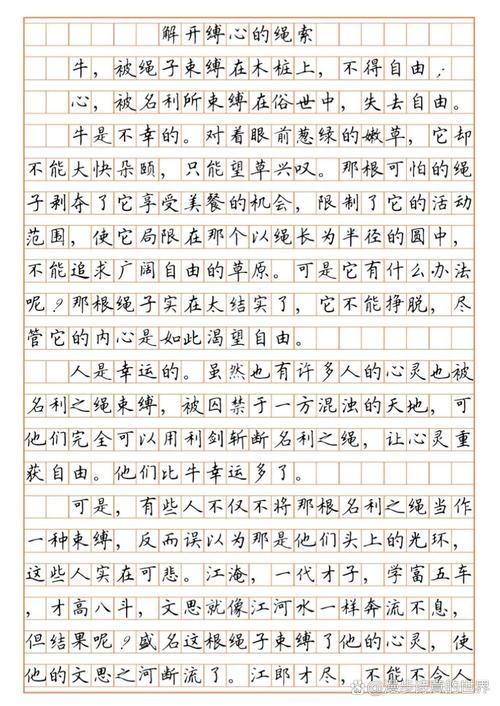 解开缚心的绳索
牛，被绳子束缚在木桩上，不得自由；
心，被名利所束缚在俗世中，失去自由。
牛是不幸的。对着眼前葱绿的嫩草，它却
不能大快朵颐，只能望草兴叹。那根可怕的绳
子剥夺了它享受美餐的机会，限制了它的活动
范围，使它局限在那个以绳长为半径的圆中，
不能追求广阔自由的草原。可是它有什么办法
呢？那根绳子实在太结实了，它不能挣脱，尽
管它的内心是如此渴望自由。
人是幸运的。虽然也有许多人的心灵也被
名利之绳束缚，被囚禁于一方混浊的天地，可
他们完全可以用利剑斩断名利之绳，让心灵重
获自由。他们比牛幸运多了。
可是，有些人不仅不将那根名利之绳当作
一种束缚，反而误以为那是他们头上的光环，
这些人实在可悲。江淹，一代才子，学富五车
，才高八斗，文思就像江河水一样奔流不息，
但结果呢？盛名这根绳子束缚了他的心灵，使
他的文思之河断流了。江郎才尽，不能不令人